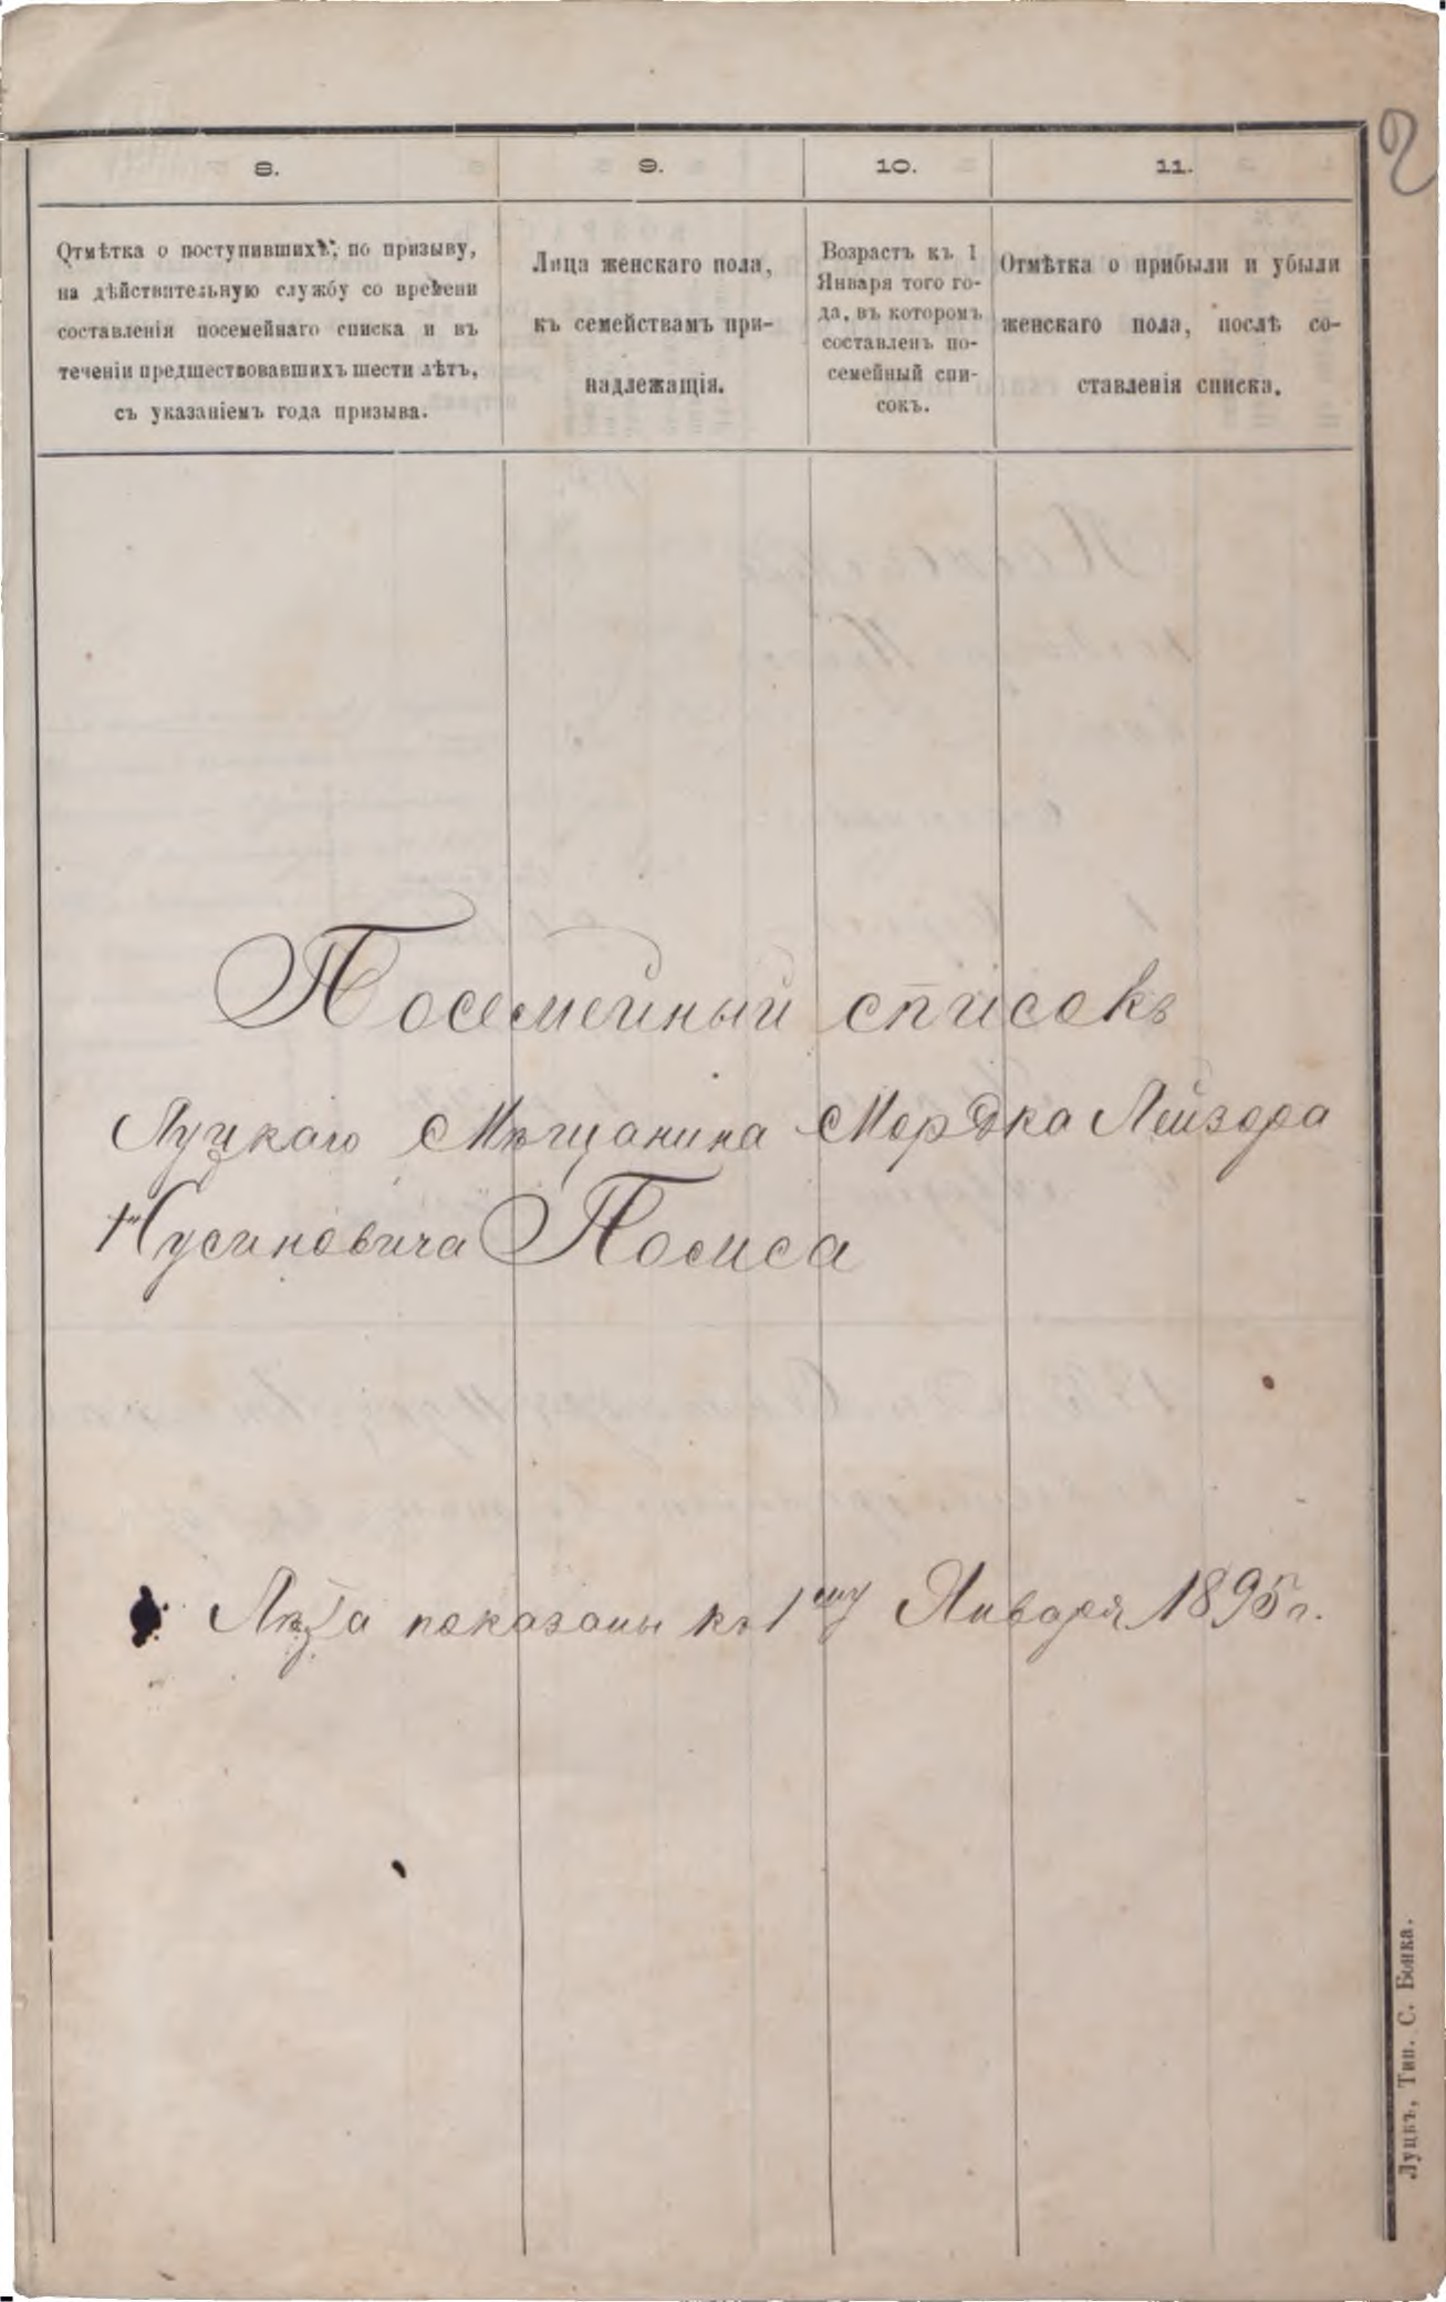 2
8.
9.
10.
11.
Отмѣтка о поступившихъ, по призыву,
на дѣйствительную службу со времени
составленія посемейнаго списка и въ
теченіи предшествовавшихъ шести лѣтъ,
съ указаніемъ года призыва.
Лица женскаго пола,
къ семействамъ при-
надлежащія.
Возрастъ къ 1
Января того го-
да, въ которомъ
составленъ по-
семейный спи-
сокъ.
Отмѣтка о прибыли и убыли
женскаго пола, послѣ со-
ставленія списка.
Посемейный списокъ
Луцкаго Мѣщанина Мордка Лейзора
Нусиновича
Лѣта показаны къ 1му Января 1895 г.
Луцкъ, Тип. С. Бонка.